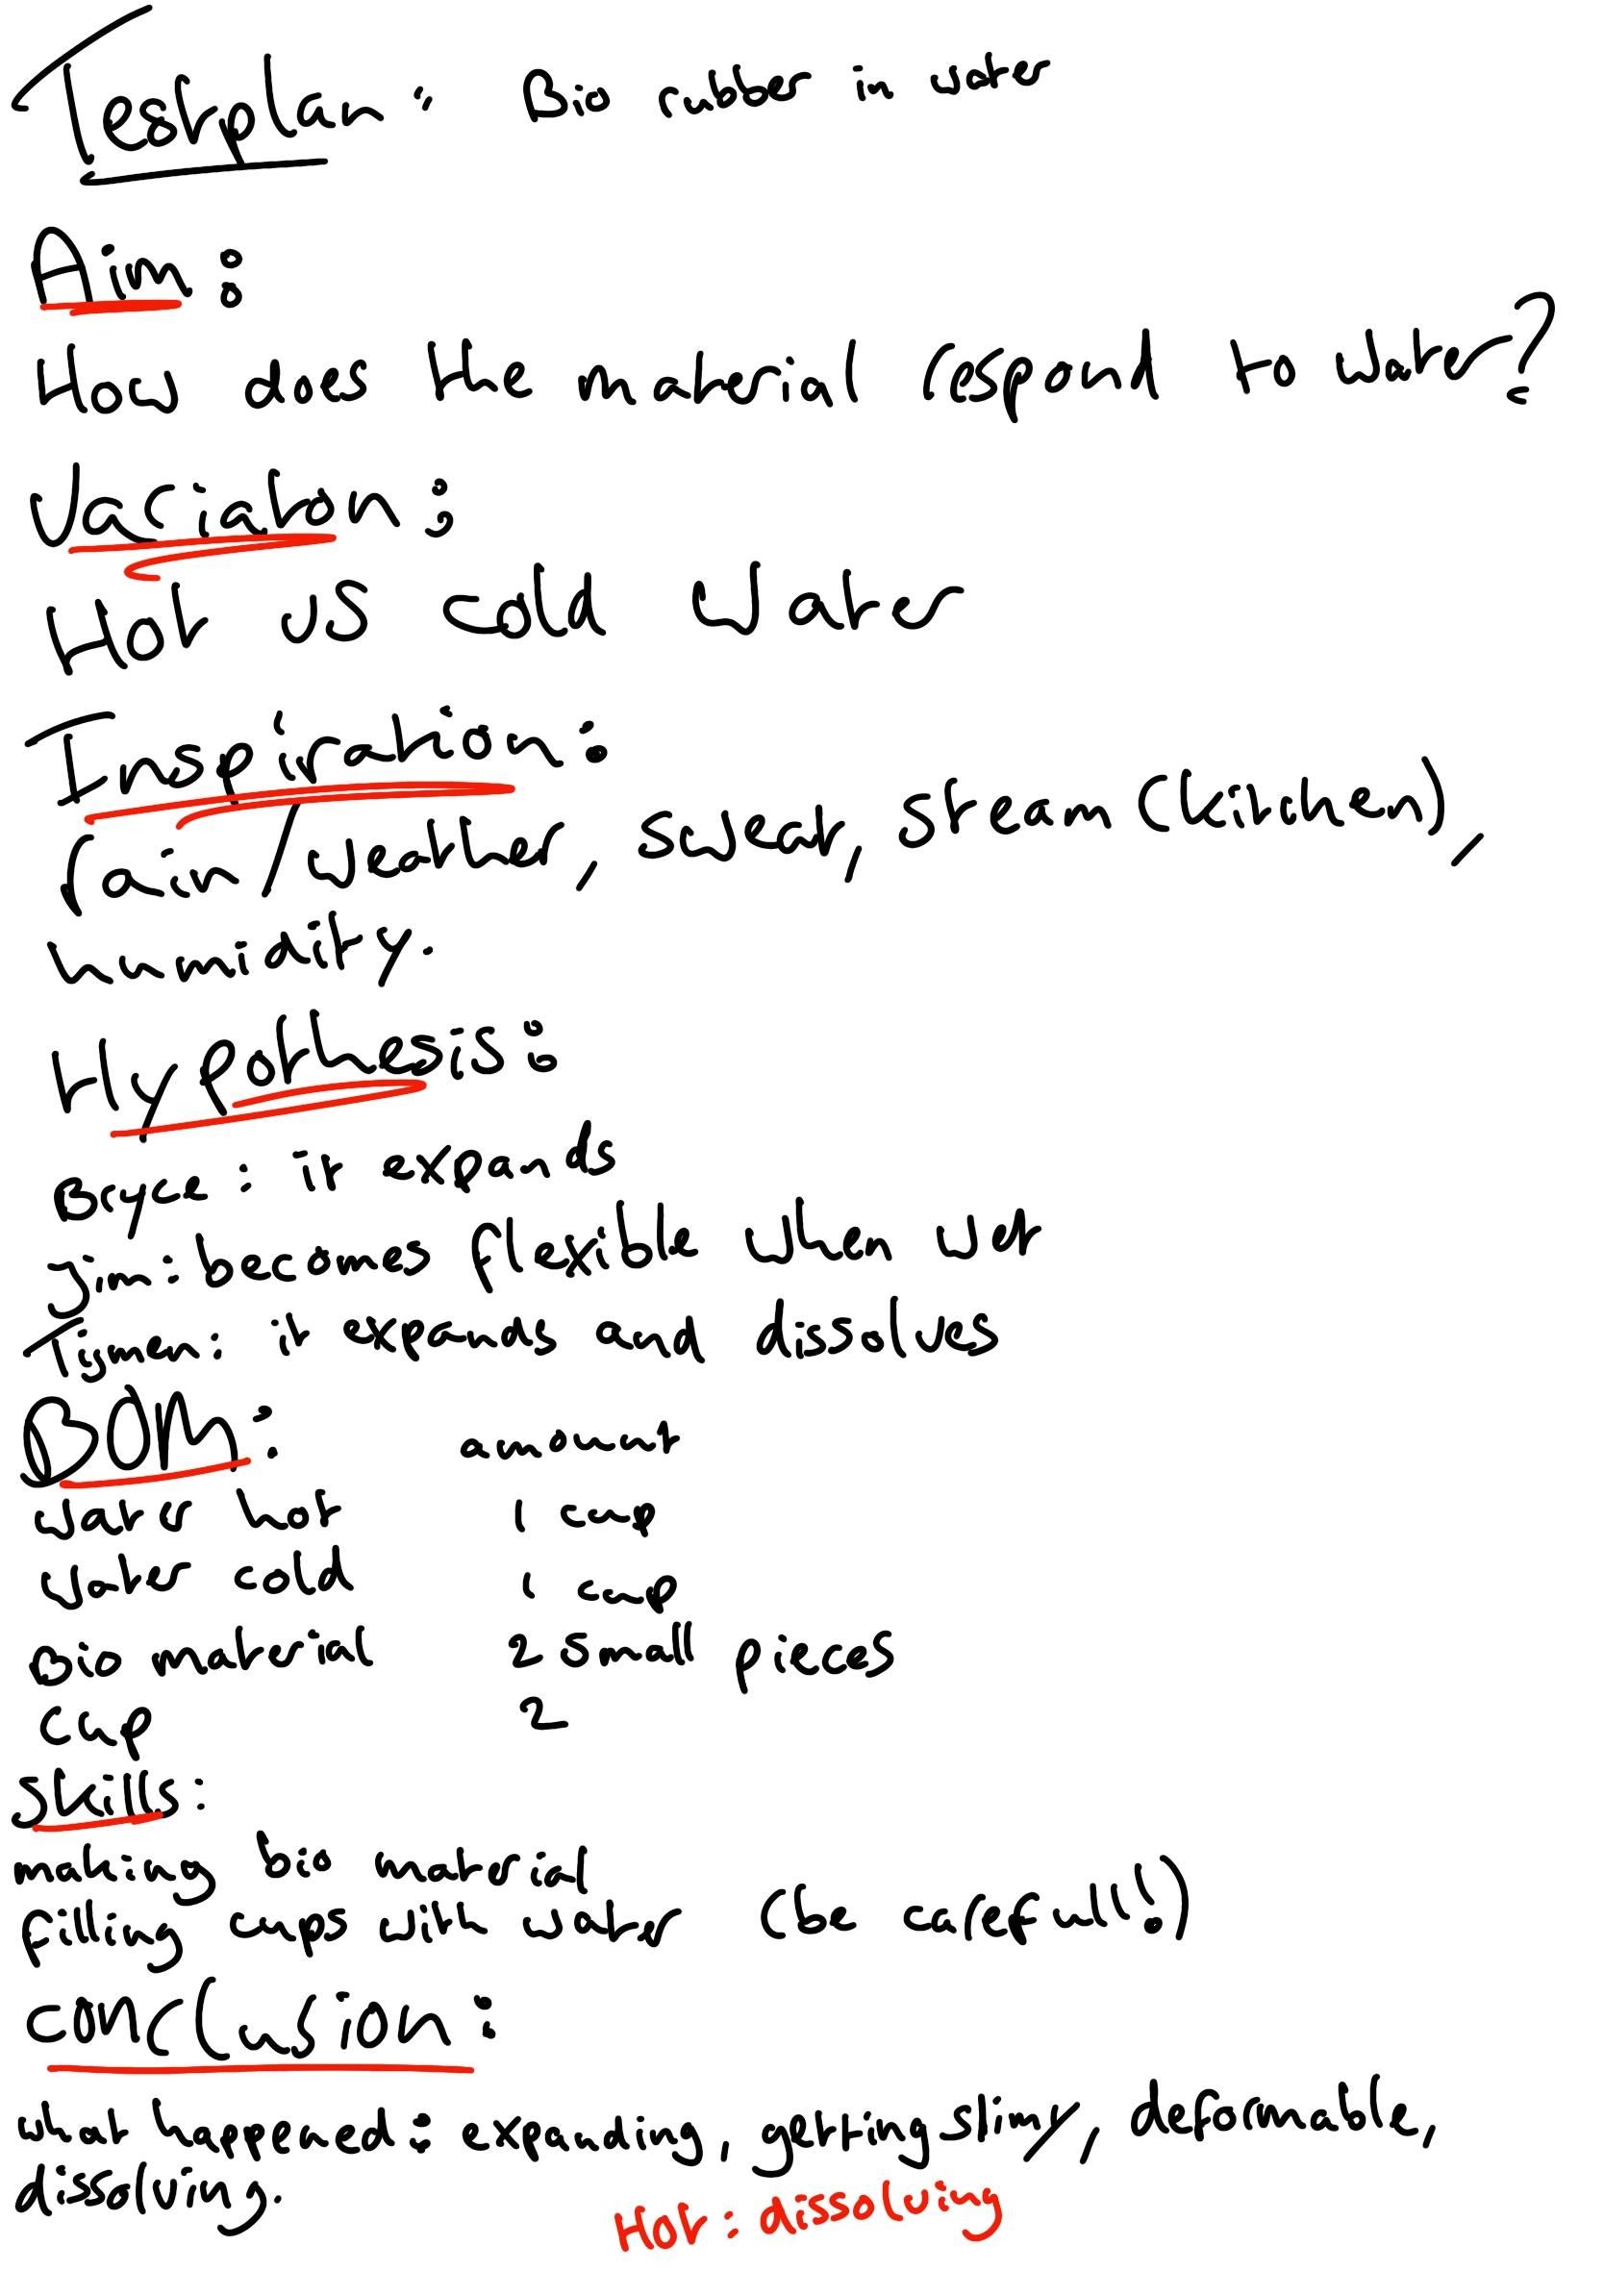 Testplan: Bio rubber in water
Aim:
How does the material respond to water?
Variation:
Hot vs cold water
Inspiration:
rain/weather, sweat, stream (kitchen),
humidity.
Hypothesis:
Bryce: it expands
jim: becomes flexible when wet
Tijmen: it expands and dissolves
BOM: amount
water hot 1 cup
water cold 1 cup
Bio material 2 small pieces
cup 2
Skills:
making bio material
filling cups with water (be carefull!)
conclusion:
what happened: expanding, getting slimy, deformable,
dissolving.
Hot: dissolving